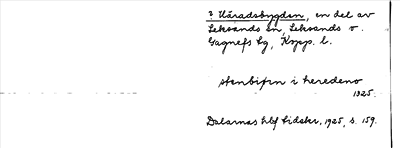 ? Håradsbygden, en del av
Leksands sn, Leksands o.
Gagnefs tg, Kopp. l.
stenbifrn i heredeno
1925.
Dalarnas hbf tidskr. 1925, s. 159.